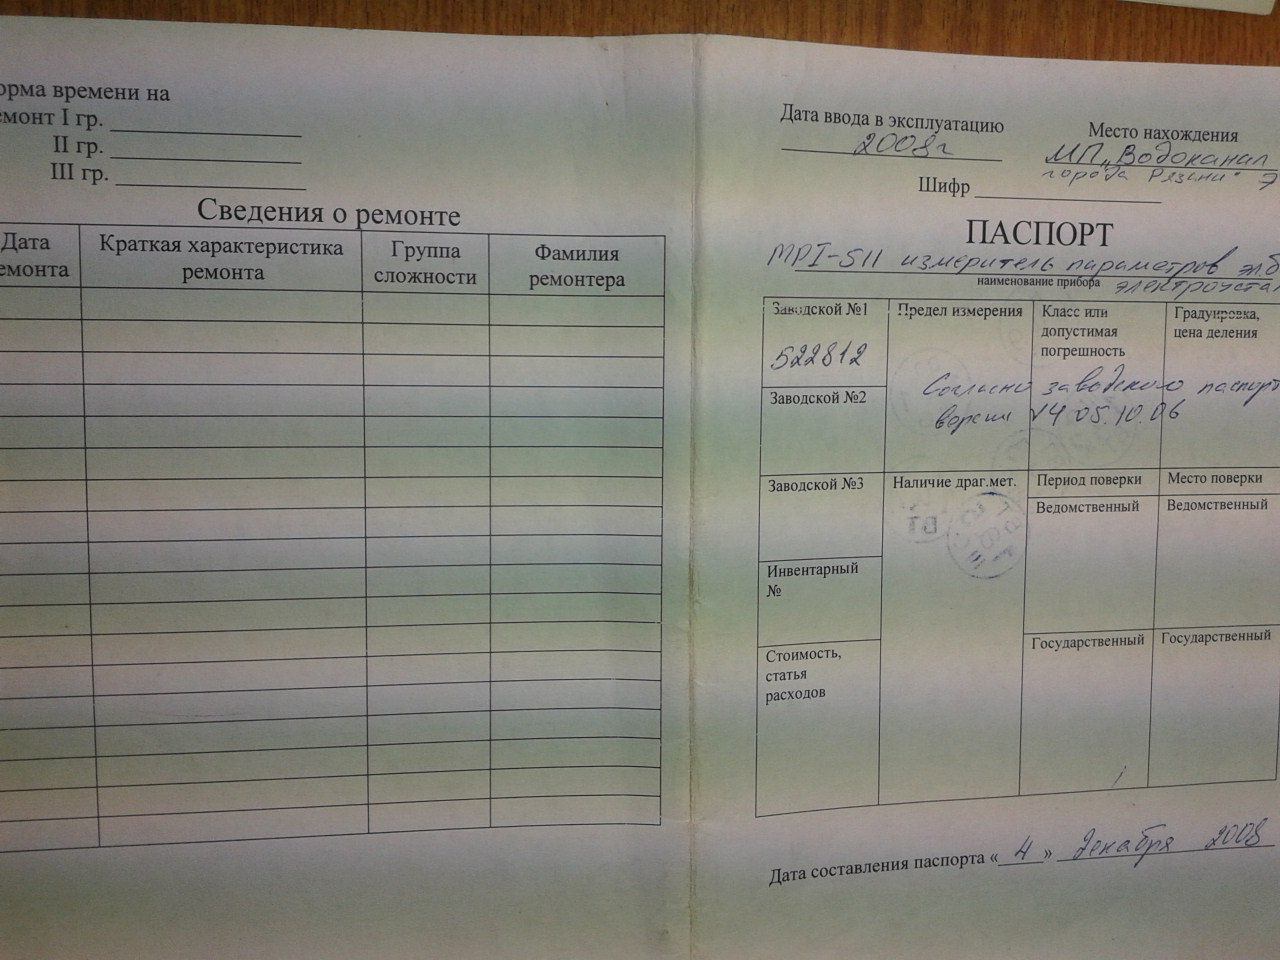 орма времени на
емонт I гр.
II гр.
III гр.
Сведения о ремонте
Дата
емонта
Краткая характеристика
ремонта
Группа
сложности
Фамилия
ремонтера
Дата ввода в эксплуатацию
2008г
Место нахождения
МП „Водоканал
города Рязани"
Шифр
ПАСПОРТ
MPI-511 измеритель параметров эл.б
наименование прибора
электроуста
Заводской №1
522812
Предел измерения
Класс или
допустимая
погрешность
Градуировка,
цена деления
Согласно заводского паспорт
версии V4 05.10.06
Заводской №2
Заводской №3
Наличие драг.мет.
Период поверки
Место поверки
Ведомственный
Ведомственный
Инвентарный
№
Государственный
Государственный
Стоимость,
статья
расходов
Дата составления паспорта « 4 » декабря 2008